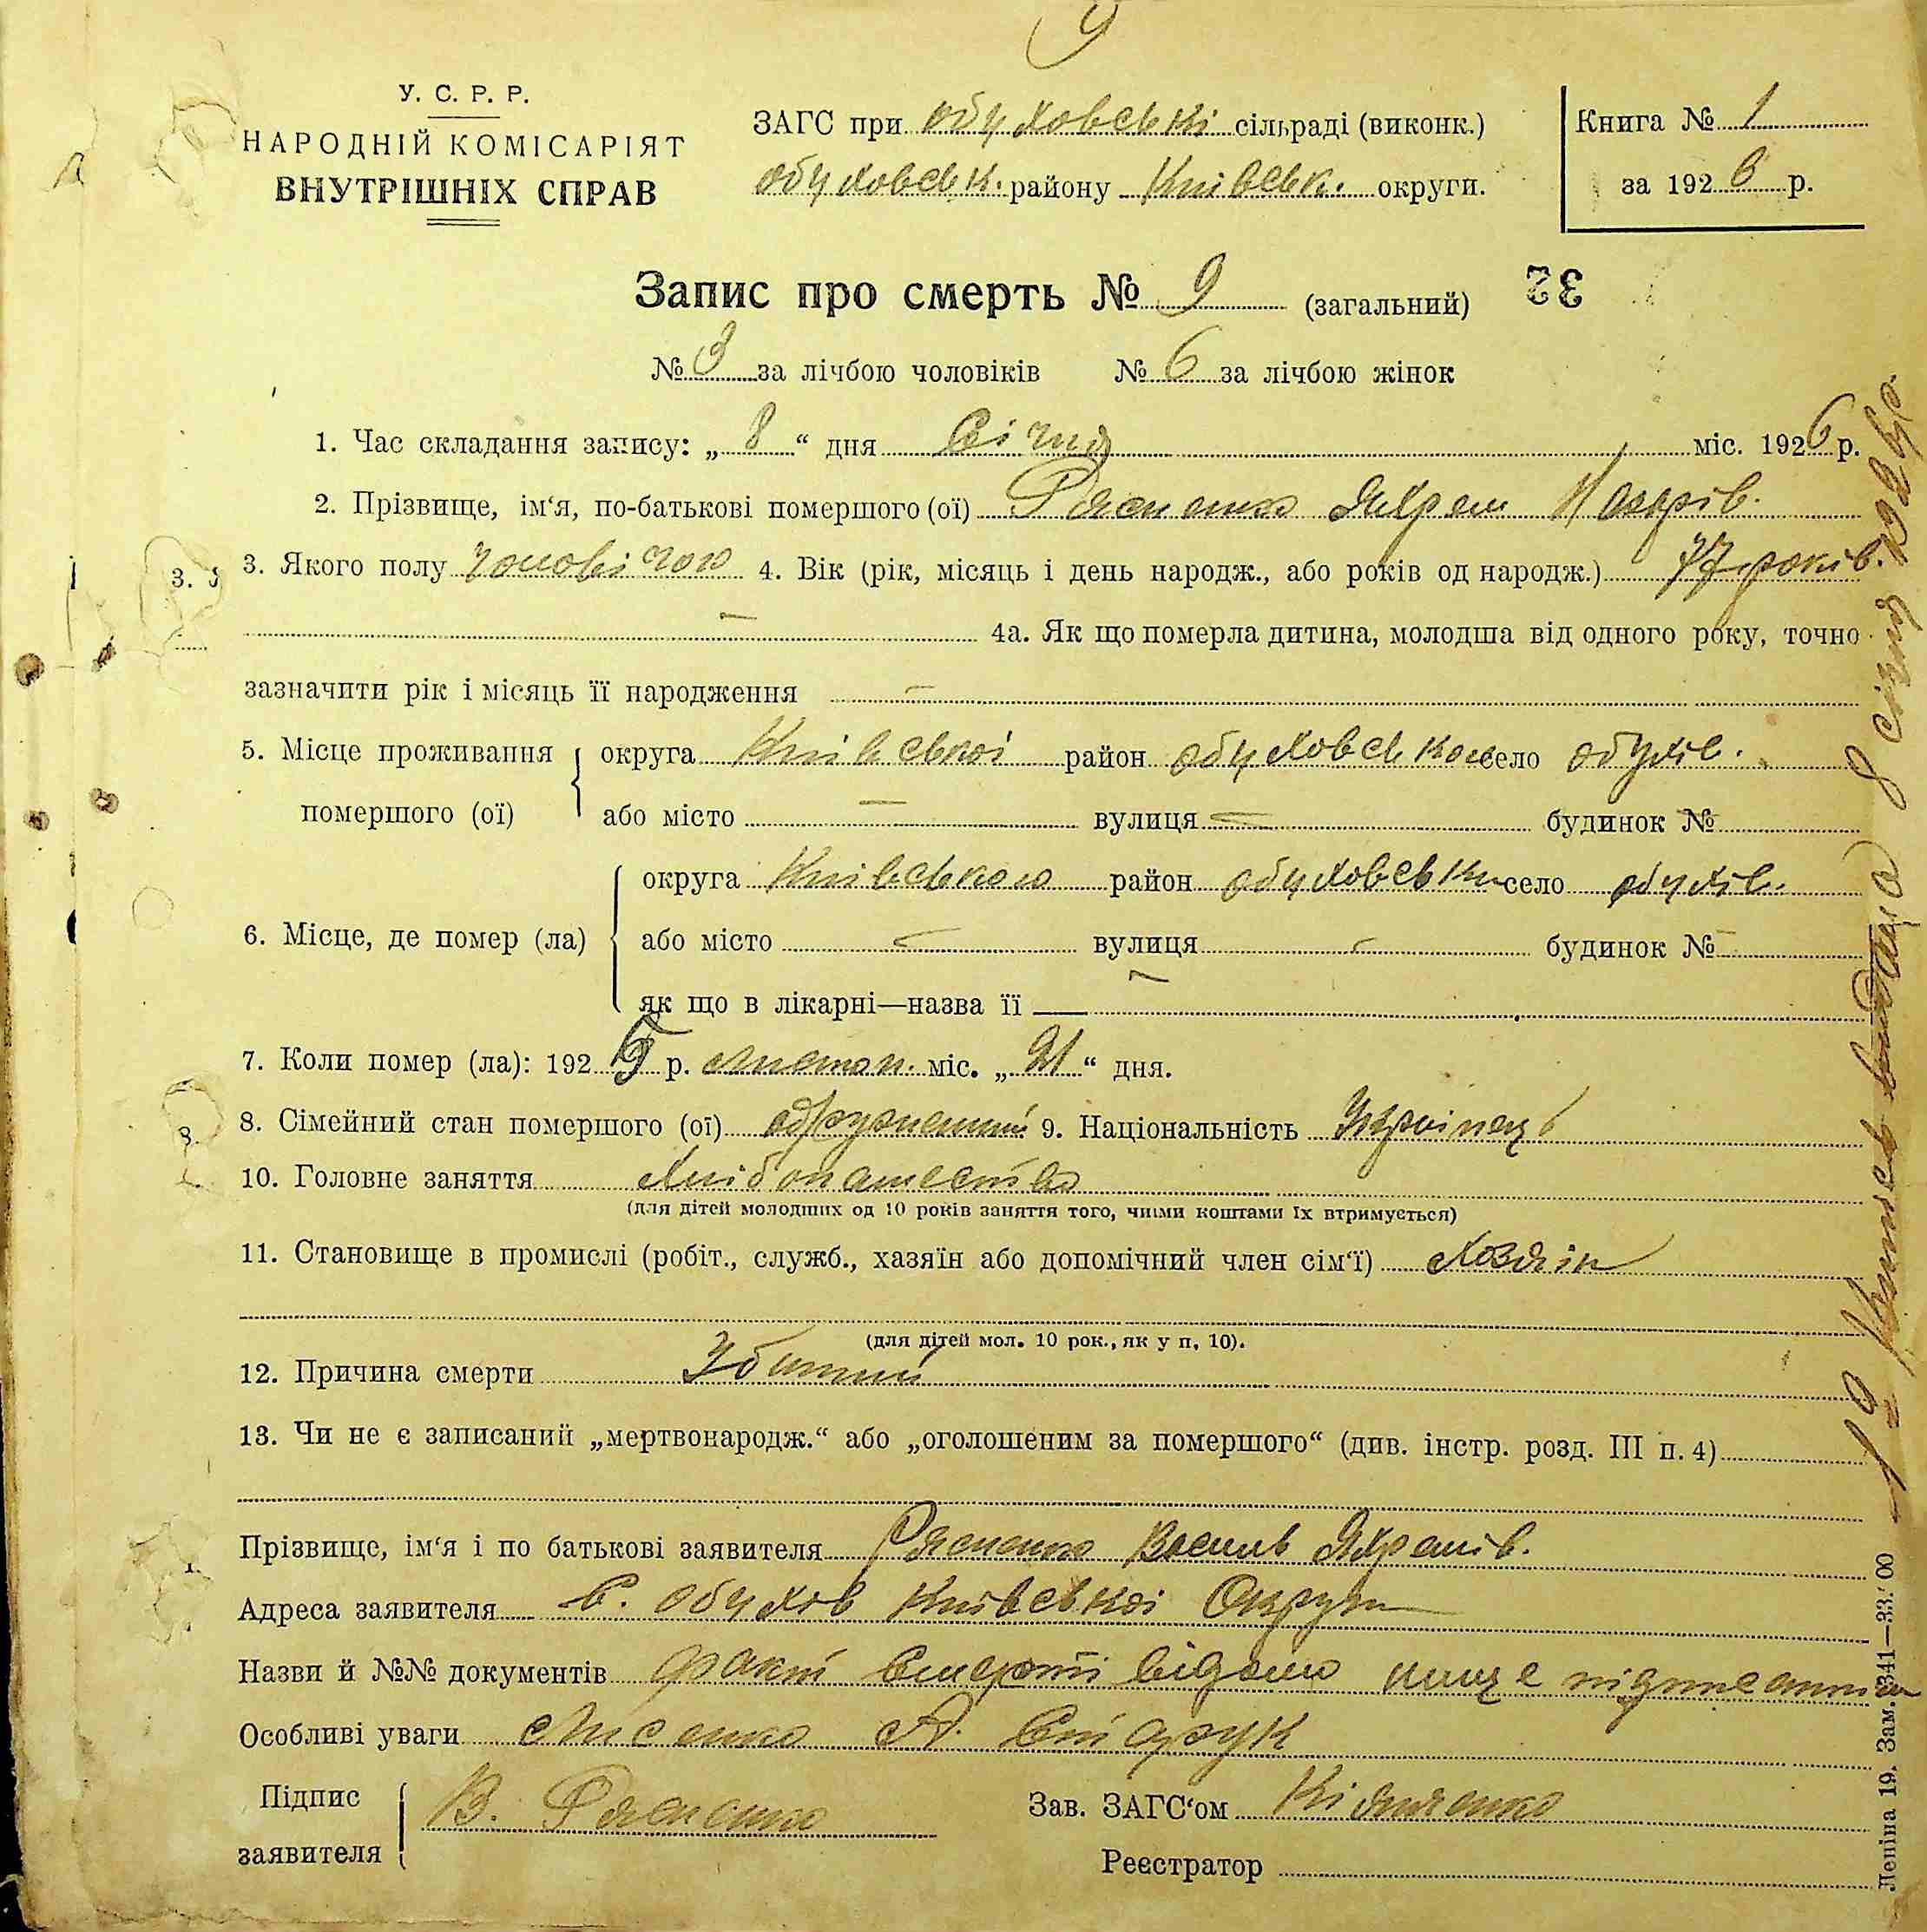 9
У. С. Р. Р.
НАРОДНІЙ КОМІСАРІЯТ
ВНУТРІШНІХ СПРАВ
ЗАГС при обуховські сільраді (виконк.)
обуховськ. району Київськ. округи.
Книга № 1
за 1926 р.
Запис про смерть № 9 (загальний) 32
№ 3 за лічбою чоловіків № 6 за лічбою жінок
1. Час складання запису: „ 8 “ дня Січня міс. 1926 р.
2. Прізвище, ім‘я, по-батькові помершого (ої)
3. Якого полу чоловічого 4. Вік (рік, місяць і день народж., або років од народж.) 77 років.
4а. Як що померла дитина, молодша від одного року, точно
зазначити рік і місяць її народження —
5. Місце проживання помершого (ої) округа Київської район обуховського село обухів.
або місто — вулиця — будинок №
6. Місце, де помер (ла) округа Київського район обуховськи село обухів.
або місто — вулиця — будинок № —
як що в лікарні—назва її —
7. Коли помер (ла): 1925 р. листоп. міс. „ 21 “ дня.
8. Сімейний стан помершого (ої) одружений 9. Національність Українець
10. Головне заняття Хлібопашество
(для дітей молодших од 10 років заняття того, чиїми коштами їх втримується)
11. Становище в промислі (робіт., служб., хазяїн або допомічний член сім‘ї) Хозяін
(для дітей мол. 10 рок., як у п. 10).
12. Причина смерти Убитий
13. Чи не є записаний „мертвонародж.“ або „оголошеним за помершого“ (див. інстр. розд. III п. 4)
Прізвище, ім‘я і по батькові заявителя Василь
Адреса заявителя с. Обухов Київської Округи
Назви й №№ документів факт смерті відомо нище підписаним
Особливі уваги Лисенко А. Стасрук
Підпис заявителя В.
Зав. ЗАГС‘ом
Реєстратор
видана 8 січня 1926 р.
Леніна 19. Зам. 341—33.'00